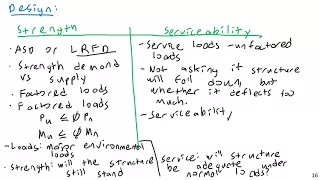 Design:
Strength
· ASD or LRFD
· Strength demand
vs supply
· Factored loads
· Factored loads
Pu ≤ ΦPn
Mu ≤ ΦMn
- Loads: major environmental
loads
- Strength: will the structure
still stand
Serviceability
- Service loads - unfactored
loads
- Not asking if structure
will fall down, but
whether it deflects to
much.
- Serviceability
Service: will structure
be adequate under
normal loads?
16